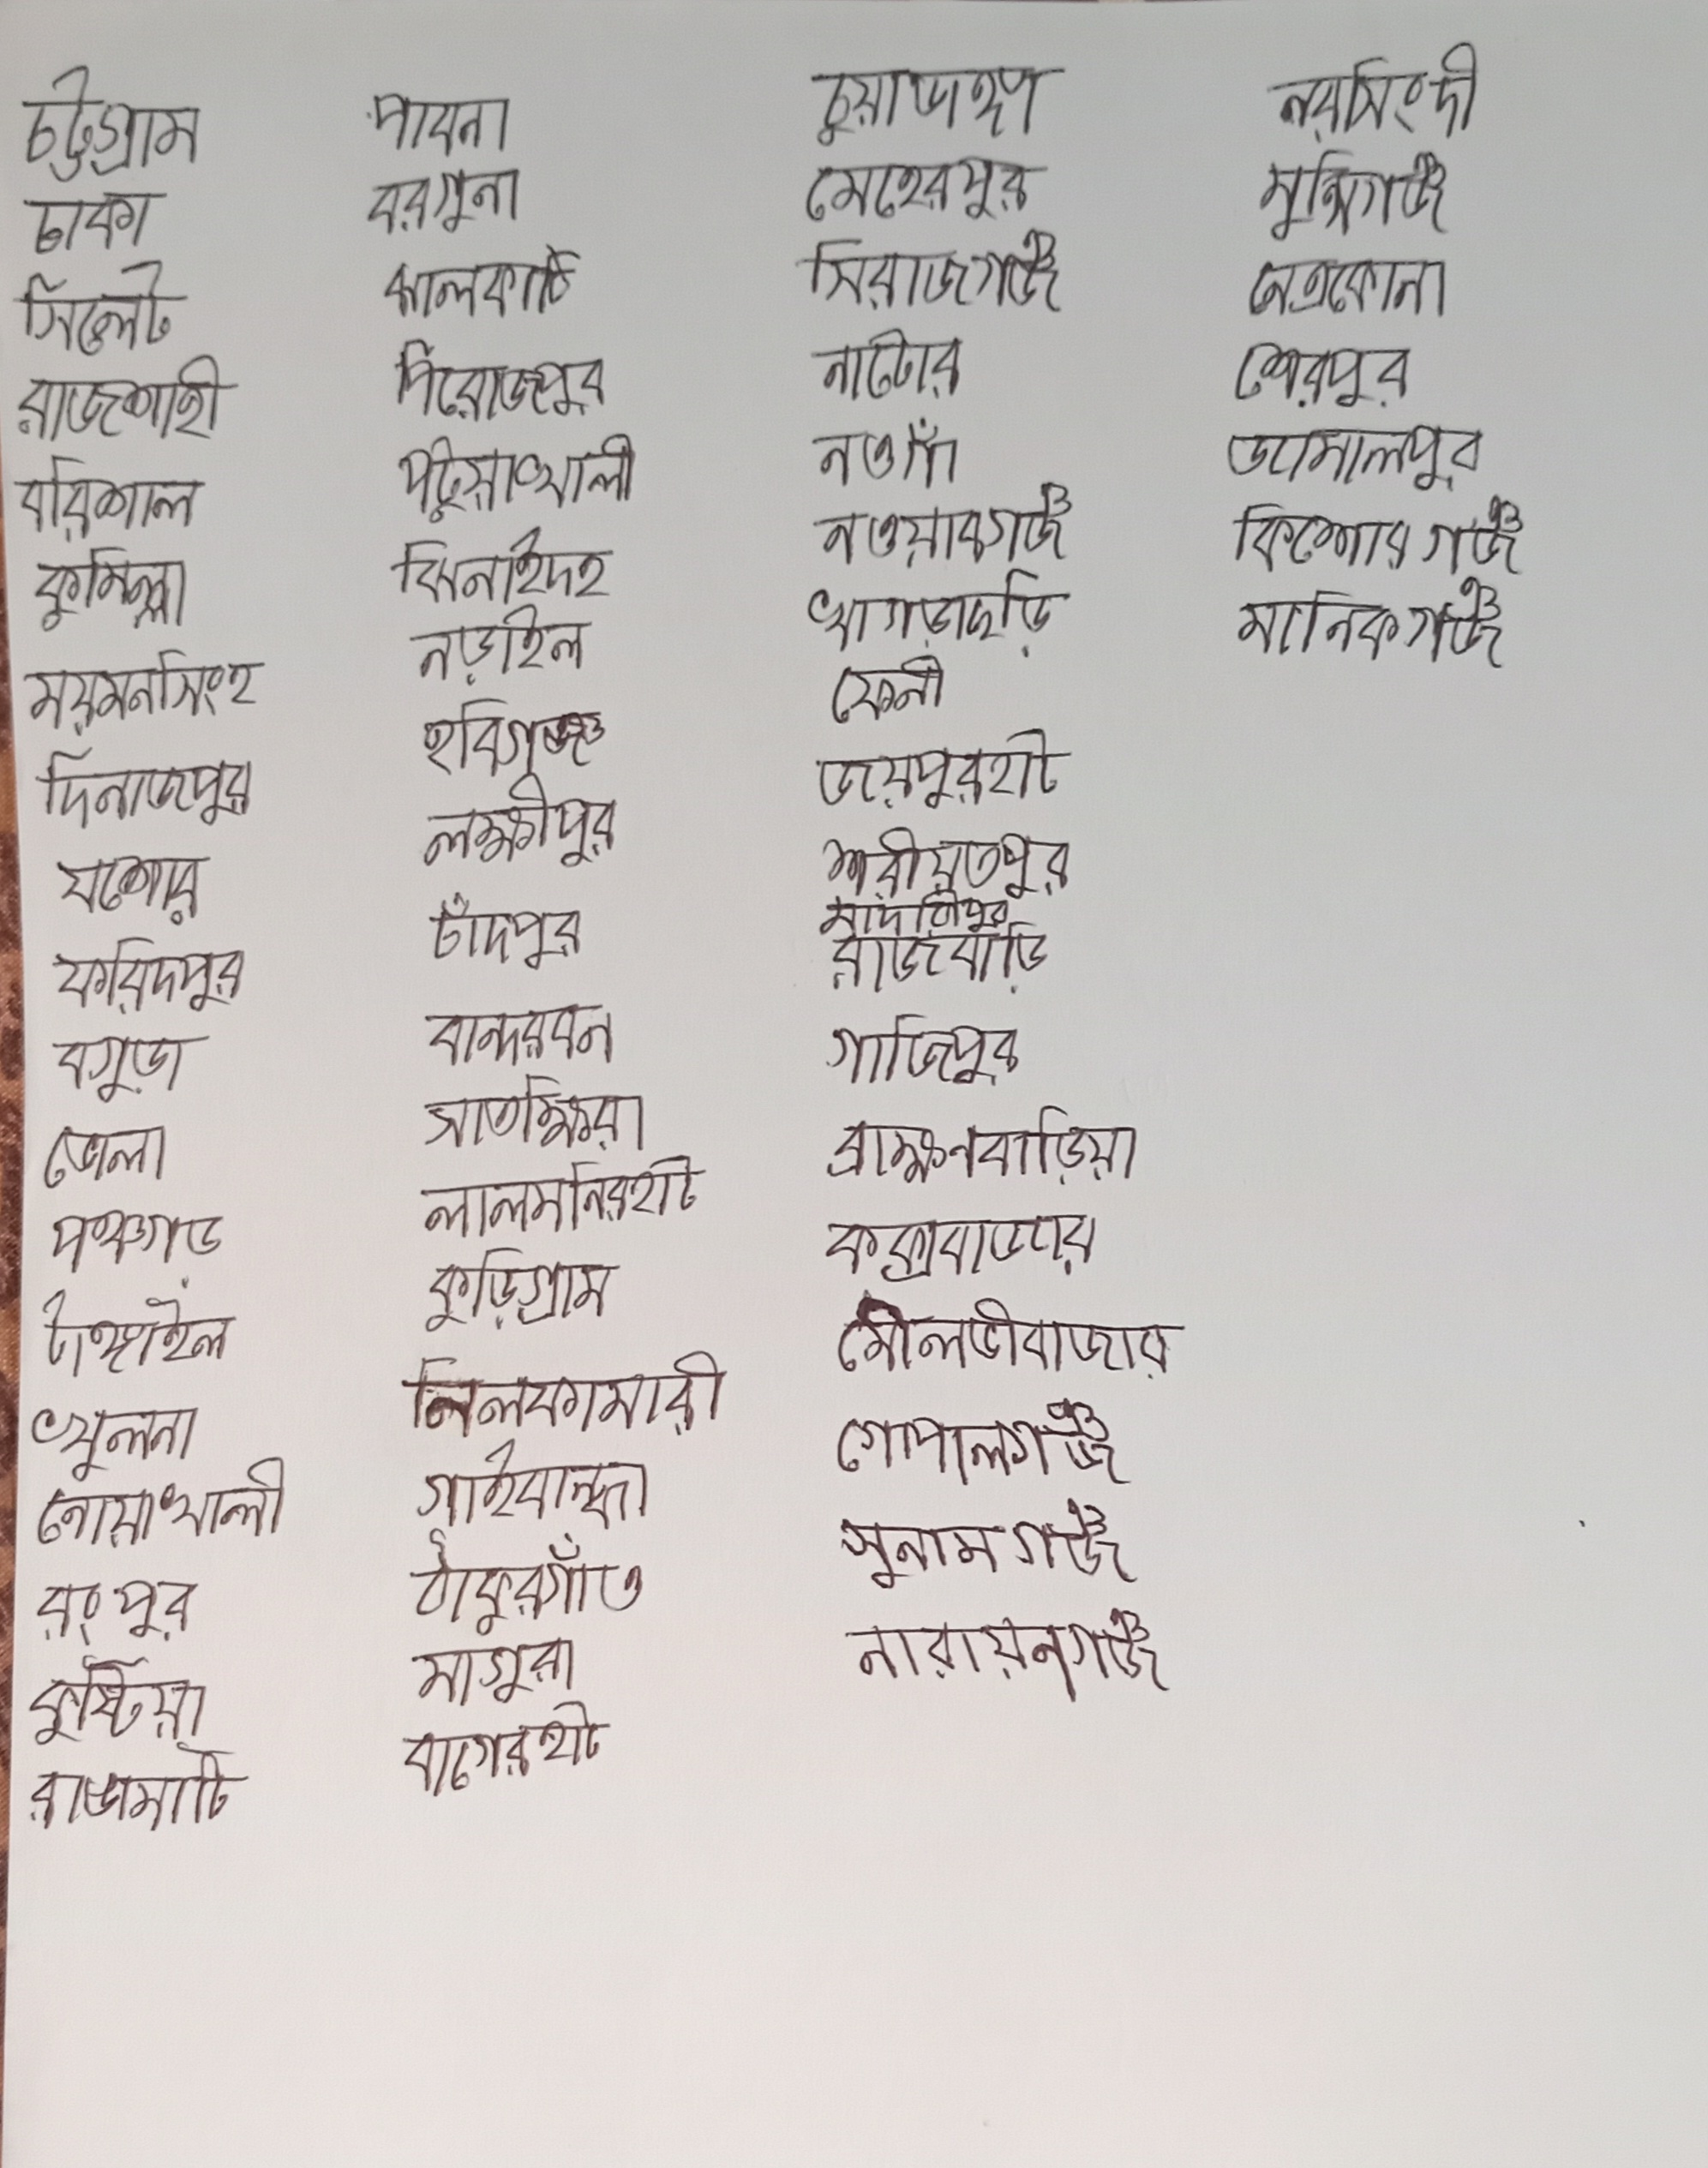 চট্টগ্রাম
ঢাকা
সিলেট
রাজশাহী
বরিশাল
কুমিল্লা
ময়মনসিংহ
দিনাজপুর
যশোর
ফরিদপুর
বগুড়া
ভোলা
পঞ্চগড়
টাঙ্গাইল
খুলনা
নোয়াখালী
রংপুর
কুষ্টিয়া
রাঙামাটি
পাবনা
বরগুনা
ঝালকাটি
পিরোজপুর
পটুয়াখালী
ঝিনাইদহ
নড়াইল
হবিগঞ্জ
লক্ষ্মীপুর
চাঁদপুর
বান্দরবন
সাতক্ষিরা
লালমনিরহাট
কুড়িগ্রাম
নিলফামারী
গাইবান্ধা
ঠাকুরগাঁও
মাগুরা
বাগেরহাট
চুয়াডাঙ্গা
মেহেরপুর
সিরাজগঞ্জ
নাটোর
নওগাঁ
নওয়াবগঞ্জ
খাগড়াছড়ি
ফেনী
জয়পুরহাট
শরীয়তপুর
মাদারীপুর
রাজবাড়ি
গাজিপুর
ব্রাক্ষনবাড়িয়া
কক্সবাজার
মৌলভীবাজার
গোপালগঞ্জ
সুনামগঞ্জ
নারায়নগঞ্জ
নরসিংদী
মুন্সিগঞ্জ
নেত্রকোনা
শেরপুর
জামালপুর
কিশোরগঞ্জ
মানিকগঞ্জ